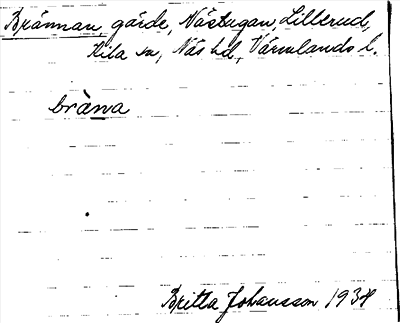 Brännan, gärde, Nästugan, Lillerud,
Kila sn, Näs hd, Värmlands l.
bràna
Britta Johansson 1938